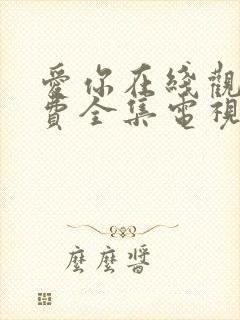 愛你在綫觀
費全集電視
麽麽醬